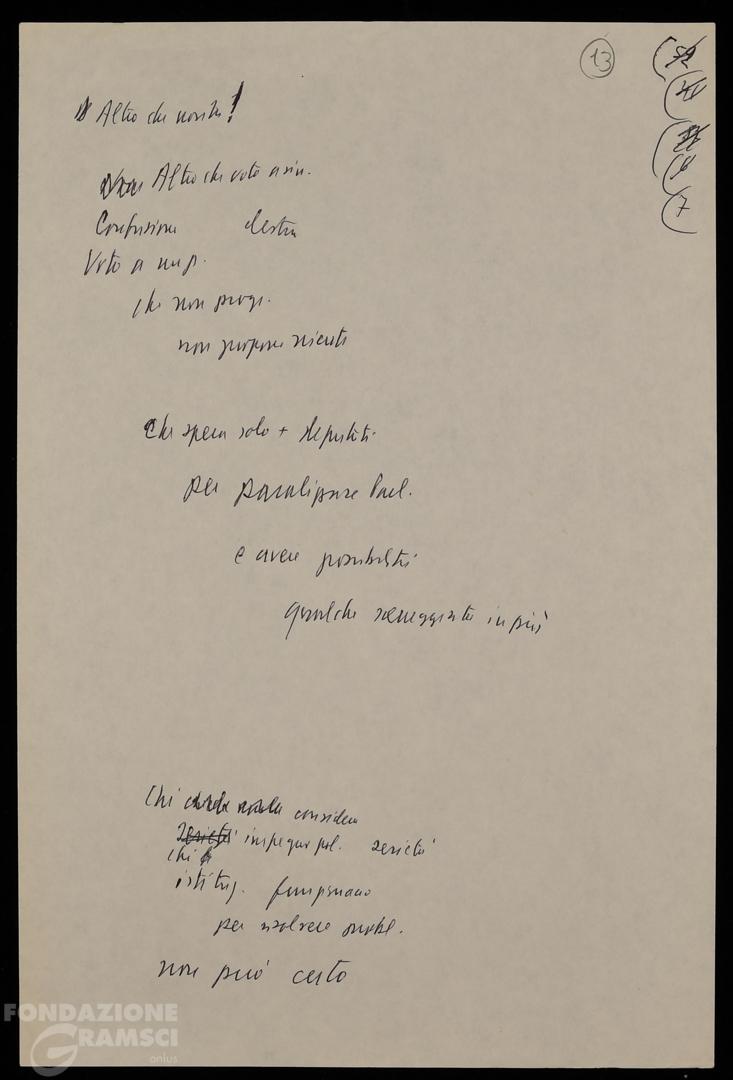 13
7
Altro che novità!
Altro che voto a sin.
Confusione destra
Voto a
che non prog.
non propone niente
Che spera solo + deputati
per paralizzare Parl.
e avere possibilità
qualche sceneggiata in più
Chi considera
serietà impegno pol. serietà
chi
istituz. funzionano
per risolvere probl.
non può certo
FONDAZIONE
GRAMSCI
onlus